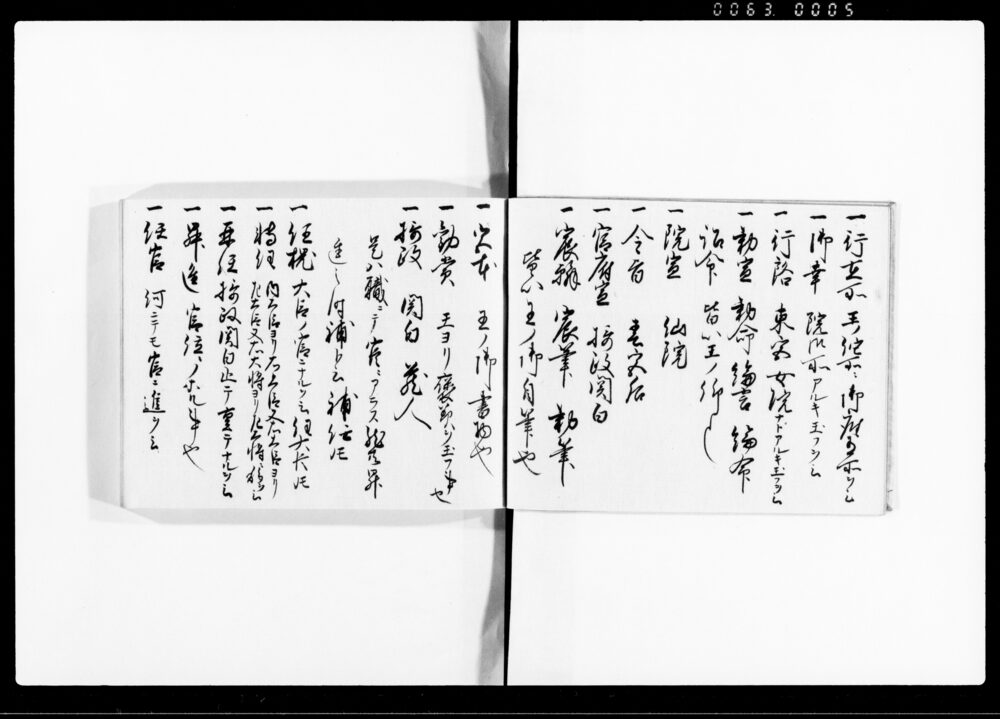 0063 0005
一行在所 王ノ他所ニ御座ノ所ヲ云
一御幸 院ノアルキ玉フヲ云
一行啓 東宮女院ナドアルキ玉フヲ云
一勅宣 勅命 綸言 綸命
詔命 皆以王ノ仰
一院宣 仙院
一令旨 春宮后
一官府宣 摂政関白
一宸翰 宸筆 勅筆
皆以王ノ御自筆也
一宸 王ノ御書物也
一勧賞 王ヨリ褒美ヲ玉フ事也
一摂政 関白 蔵人
是ハ職ニテ官ニアラス 昇
進之時補ト云 補任
一任槐 大臣ノ官ニナルヲ云
一転任 内大臣ヨリ右大臣又右大臣ヨリ
左大臣又右大将ヨリ左大将
一重任 摂政関白止テ重テナルヲ云
一昇進 官位ノ 事也
一任官 何ニテモ官ニ進ヲ云